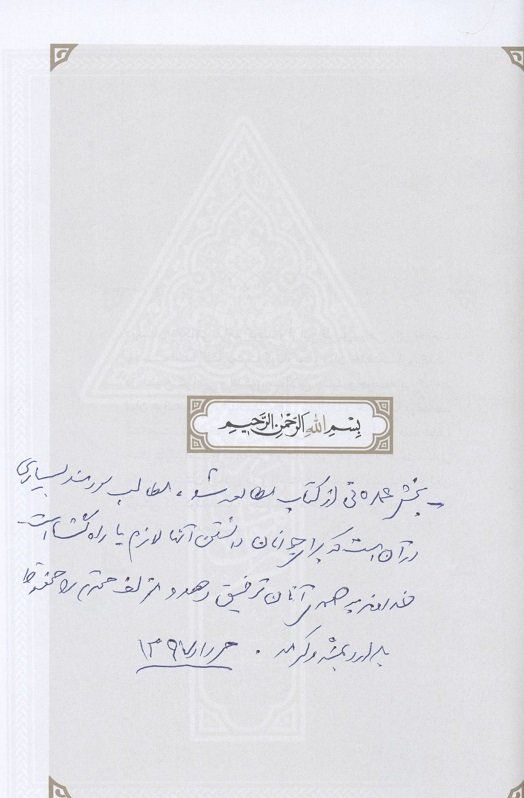 بِسْمِ اللهِ الرَّحْمٰنِ الرَّحِيمِ
بخش عمده‌ئی از کتاب مطالعه شد، مطالب سودمند بسیاری
در آن است که برای جوانان دانستن آنها لازم یا راه‌گشا است
خداوند به همه‌ی آنان توفیق دهد و مؤلف محترم را محفوظ
بدارد بمنّه و کرمه. مرداد ۱۳۹۷